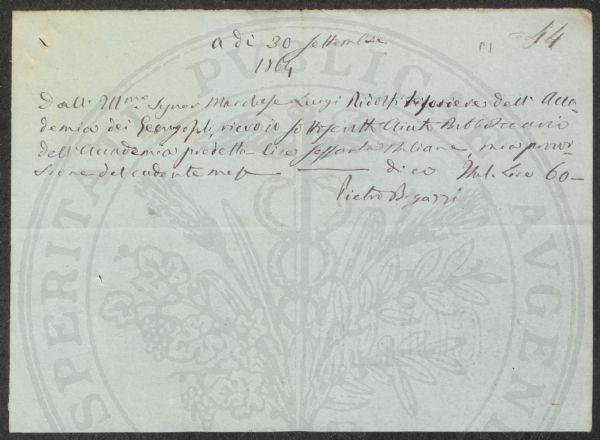 a dì 30 Settembre
44
1864
Dall' Ill.mo Signor Marchese Luigi Ridolfi Tesoriere dell' Acca
demia dei Georgofili, ricevo io sottoscritto Aiuto Bibliotecario
dell' Accademia predetta Lire sessanta Italiane, mia provvi-
sione del cadente mese ——— dico Ital. Lire 60 —
Pietro Bigazzi
PROSPERITATI PUBLICAE AUGENDAE